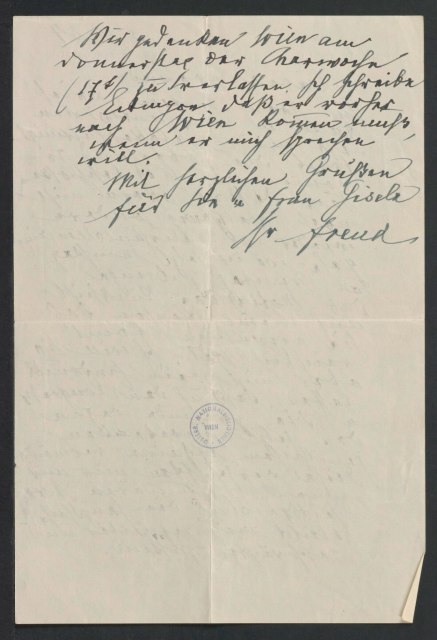 Wir gedenken Wien am
Donnerstag der Charwoche
(17t) zu verlassen. Ich schreibe
Eitingon, daß er vorher
nach Wien kommen muß,
wenn er mich sprechen
will.
Mit herzlichen Grüßen
für Sie u Frau Gisela
Ihr Freud
ÖSTERR. NATIONALBIBLIOTHEK
WIEN